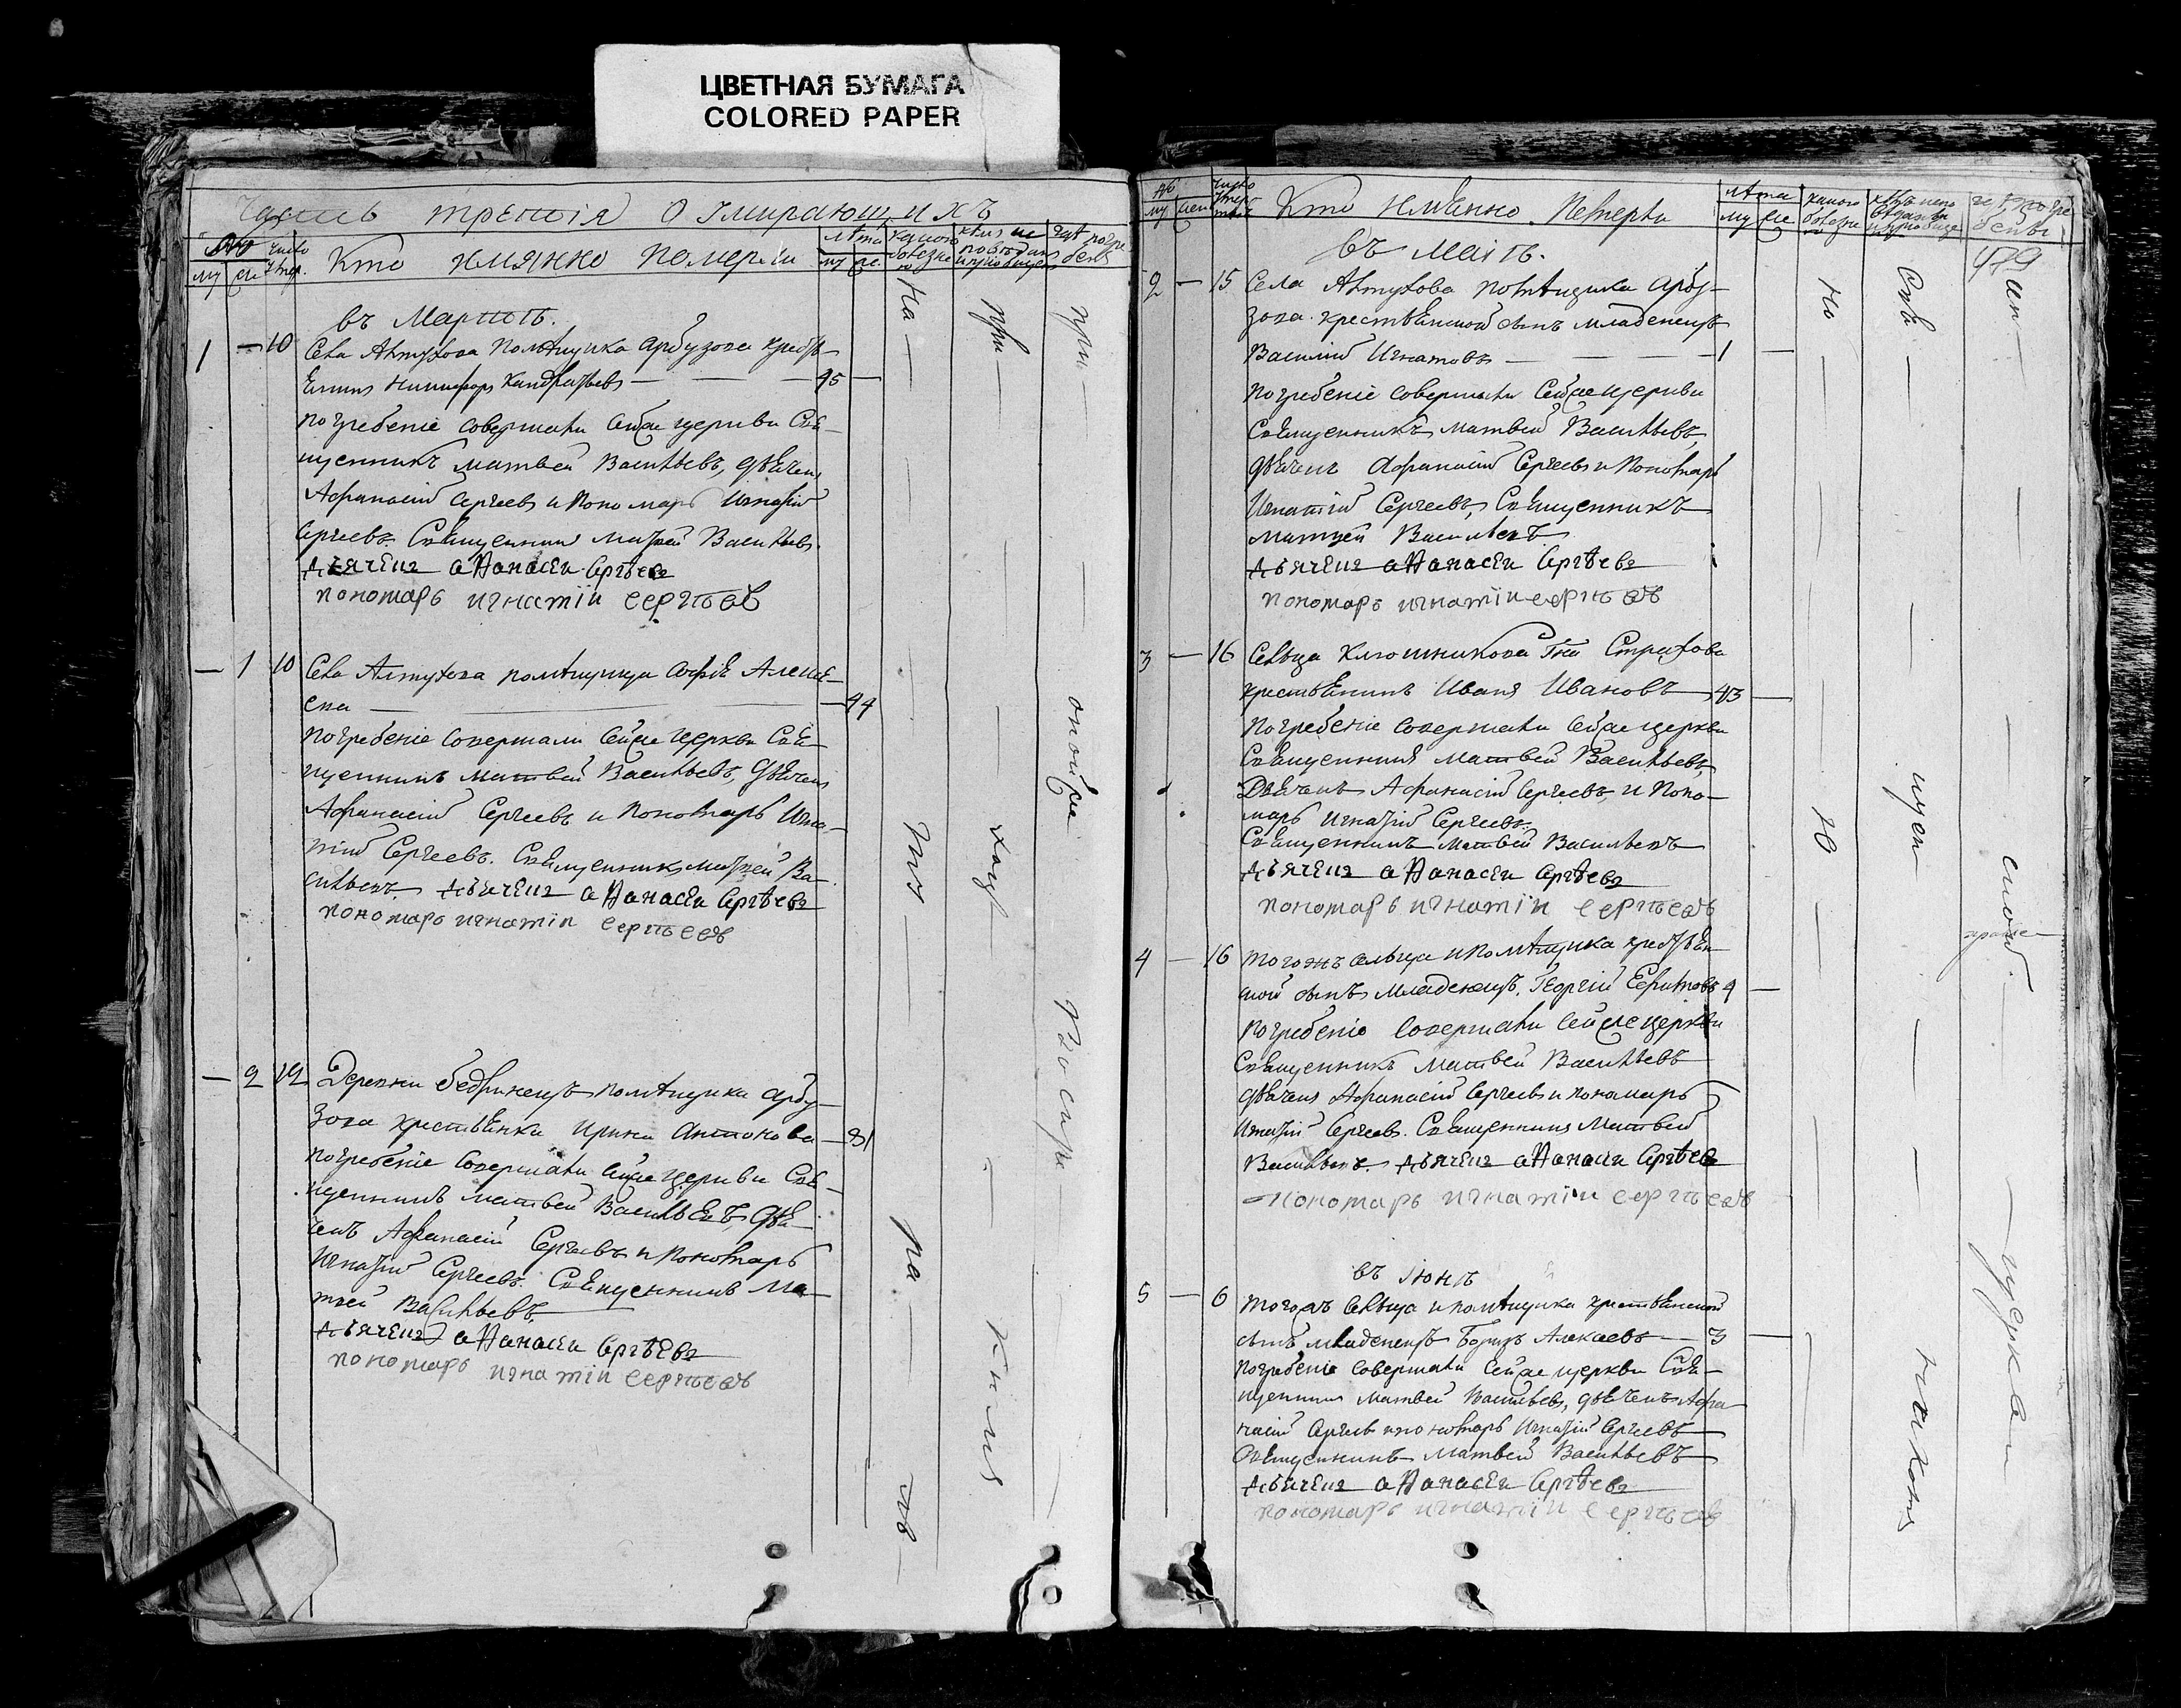 ЦВЕТНАЯ БУМАГА
COLORED PAPER
Часть третія О Умирающихъ
му
Кто имянно Померли
лѣта
въ Мартѣ.
1 — 10 Села Алтухова Помѣщика Арбузова крестъ-
янинъ Никифоръ Кандратьевъ — 45 —
погребеніе совершали сейже церкви Свя-
щенникъ Матвей Васильевъ, дьячекъ
Афанасій Сергеевъ и Пономарь Игнатій
Сергеевъ. Священникъ Матвей Васильевъ.
дьячекъ аѳанасеи Сергѣевъ
пономарь игнатіи сергѣевъ
— 1 10 Села Алтухова помѣщица Софья Алексѣ-
ева — 44
погребеніе совершали сейже церкви Свя-
щенникъ Матвей Васильевъ, дьячекъ
Афанасій Сергеевъ и Пономарь Игна-
тій Сергеевъ. Священникъ Матвей Ва-
сильевъ. дьячекъ аѳанасеи Сергѣевъ
пономарь игнатіи сергѣевъ
— 2 12 Деревни помѣщика Арбу-
зова крестьянка Ирина Антонова — 81
погребеніе совершали сейже церкви Свя-
щенникъ Матвей Васильевъ, дья-
чекъ Афанасій Сергеевъ и Пономарь
Игнатій Сергеевъ. Священникъ Ма-
твей Васильевъ,
дьячекъ аѳанасеи Сергѣевъ
пономарь игнатіи сергѣевъ
Кто имѣнно Померли
лѣта
479
въ Маіѣ.
2 — 15 Села Алтухова помѣщика Арбу-
зова крестьянской сынъ младенецъ
Василій Игнатовъ — 1 —
погребеніе совершали сейже церкви
Священникъ Матвей Васильевъ,
дьячекъ Афанасій Сергеевъ и Пономарь
Игнатій Сергеевъ, Священникъ
Матвей Васильевъ
дьячекъ аѳанасеи Сергѣевъ
пономарь игнатіи сергѣевъ
3 — 16 Сельца Клюшникова Гна Страхова
крестьянинъ Иванъ Ивановъ — 43 —
погребеніе совершали сейже церкви
Священникъ Матвей Васильевъ,
Дьячекъ Афанасій Сергеевъ, и Поно-
марь Игнатій Сергеевъ.
Священникъ Матвей Васильевъ
дьячекъ аѳанасеи Сергѣевъ
пономарь игнатіи сергѣевъ
4 — 16 тогожъ сельца и помѣщика крестьян-
ской сынъ младенецъ Георгій 4 —
погребеніе совершали сейже церкви
Священникъ Матвей Васильевъ
дьячекъ Афанасій Сергеевъ и пономарь
Игнатій Сергеевъ. Священникъ Матвей
Васильевъ. дьячекъ аѳанасеи Сергѣевъ
пономарь игнатіи сергѣевъ
въ Іюнѣ
5 — 6 тогожъ сельца и помѣщика крестьянской
сынъ младенецъ — 3 —
погребеніе совершали сейже церкви Свя-
щенникъ Матвей Васильевъ, дьячекъ Афа-
насій Сергеевъ и пономарь Игнатій Сергеевъ
Священникъ Матвей Васильевъ
дьячекъ аѳанасеи Сергѣевъ
пономарь игнатіи сергѣевъ